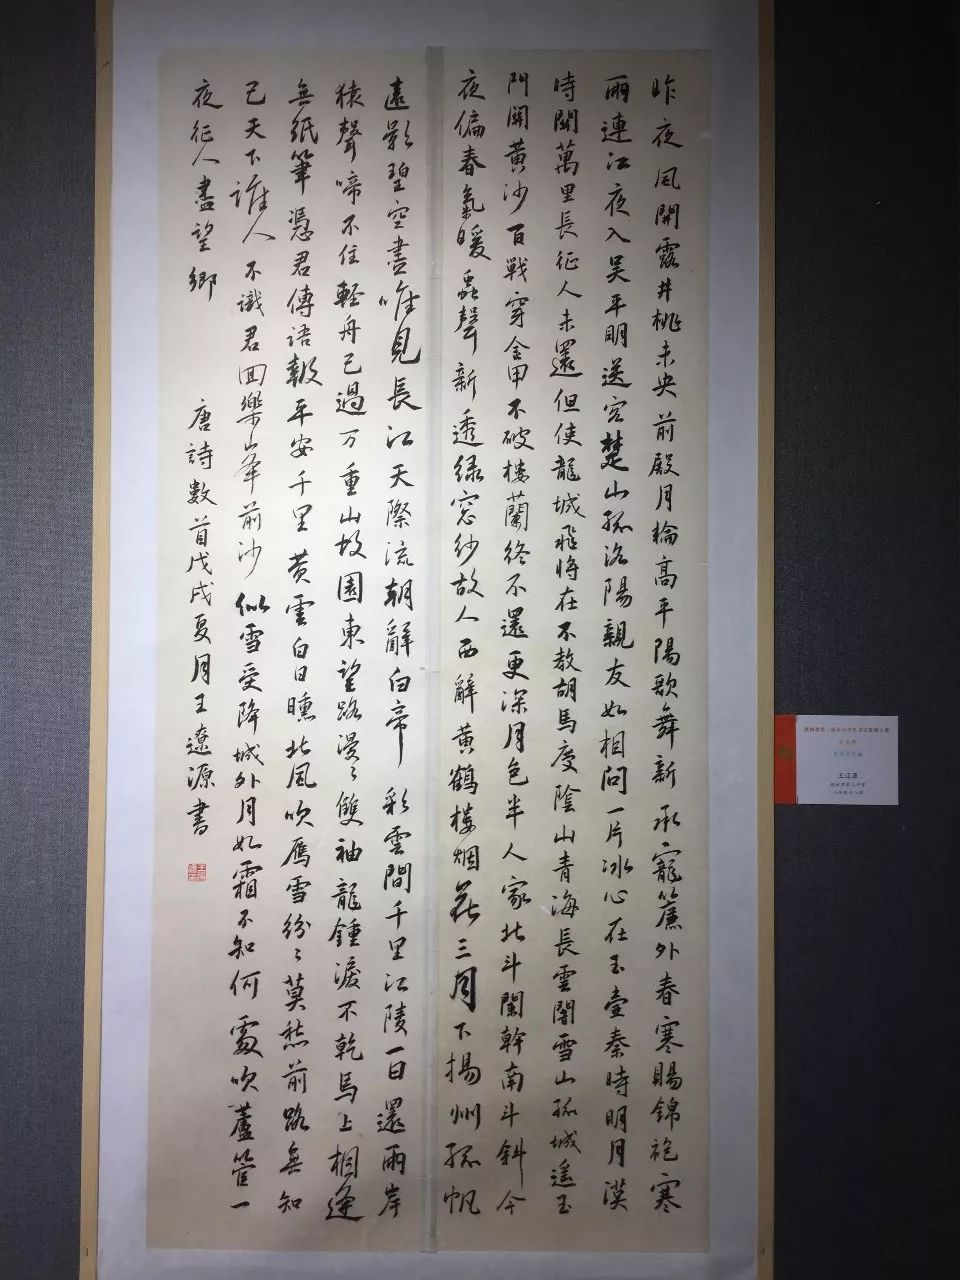 昨夜風開露井桃未央前殿月輪高平陽歌舞新承寵簾外春寒賜錦袍寒
雨連江夜入吴平明送客楚山孤洛陽親友如相問一片冰心在玉壺秦時明月漢
時關萬里長征人未還但使龍城飛將在不教胡馬度陰山青海長雲闇雪山孤城遥玉
門關黄沙百戰穿金甲不破樓蘭終不還更深月色半人家北斗闌幹南斗斜今
夜偏春氣暖蟲聲新透緑窓紗故人西辭黄鶴樓烟花三月下揚州孤帆
遠影碧空盡唯見長江天際流朝辭白帝彩雲間千里江陵一日還兩岸
猿聲啼不住輕舟已過万重山故園東望路漫〻雙袖龍鍾淚不乾馬上相逢
無紙筆憑君傳語報平安千里黄雲白日曛北風吹雁雪紛〻莫愁前路無知
己天下誰人不識君回樂峰前沙似雪受降城外月如霜不知何處吹蘆管一
夜征人盡望鄉 唐詩數首戊戌夏月王遼源書
王辽源